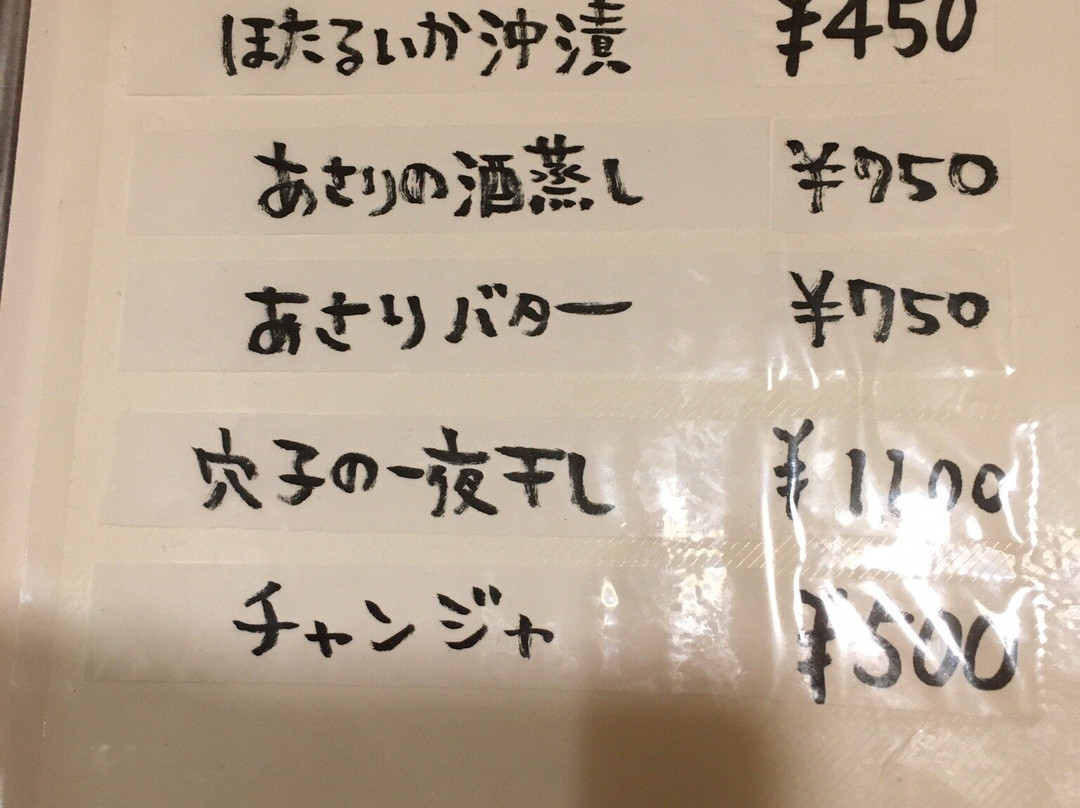 ほたるいか沖漬 ¥450
あさりの酒蒸し ¥750
あさりバター ¥750
穴子の一夜干し ¥1100
チャンジャ ¥500